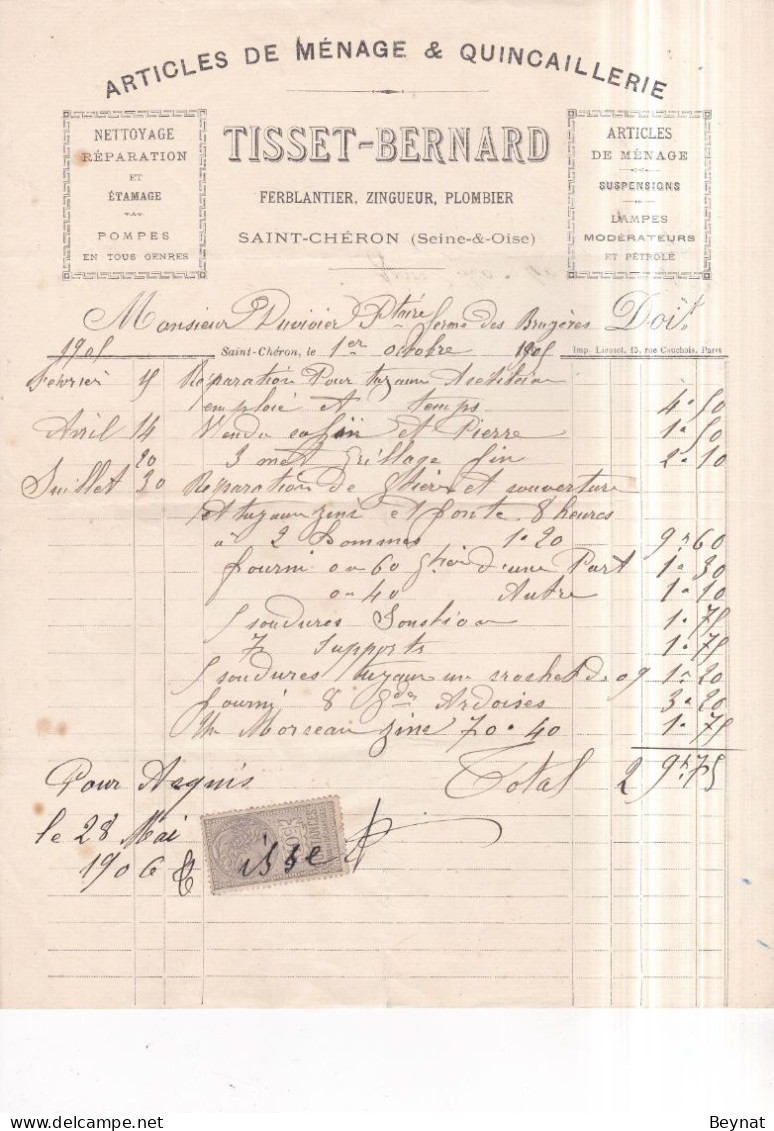 ARTICLES DE MÉNAGE & QUINCAILLERIE
NETTOYAGE
RÉPARATION
ET
ÉTAMAGE
POMPES
EN TOUS GENRES
TISSET-BERNARD
FERBLANTIER, ZINGUEUR, PLOMBIER
SAINT-CHÉRON (Seine-&-Oise)
ARTICLES
DE MÉNAGE
SUSPENSIONS
LAMPES
MODÉRATEURS
ET PÉTROLE
Monsieur Duvivier Ptaire ferme des Bruyères Doit
1905 Saint-Chéron, le 1er octobre 1905 Imp. Lienset, 15, rue Cauchois, Paris
Février 5 Réparation Pour tuyaux
emploié et temps 4.50
Avril 14 Vendu et Pierre 1.50
20 3 met Grillage fin 2.10
Juillet 30 Réparation de Gtière et couverture
et tuyaux zinc et fonte 8 heures
a 2 hommes 1.20 9f.60
fourni 0m60 Gtière d'une Part 1.30
0m40 Autre 1.10
5 soudures 1.75
7 Supports 1.75
5 soudures tuyaux un crochet de 09 1.20
fourni 8 Gdes Ardoises 3.20
Un Morceau zinc 70.40 1.75
Total 29f.75
Pour Aquis
le 28 Mai
1906